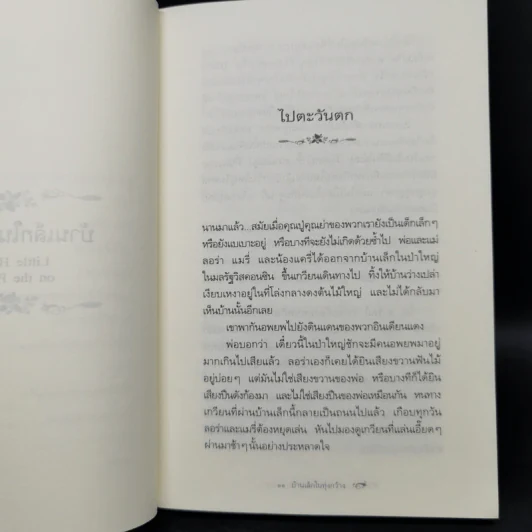 ไปตะวันตก
นานมาแล้ว...สมัยเมื่อคุณปู่คุณย่าของพวกเรายังเป็นเด็กเล็กๆ
หรือยังแบเบาะอยู่ หรือบางทีจะยังไม่เกิดด้วยซ้ำไป พ่อและแม่
ลอร่า แมรี่ และน้องแครี่ได้ออกจากบ้านเล็กในป่าใหญ่
ในมลรัฐวิสคอนซิน ขึ้นเกวียนเดินทางไป ทิ้งให้บ้านว่างเปล่า
เงียบเหงาอยู่ในที่โล่งกลางดงต้นไม้ใหญ่ และไม่ได้กลับมา
เห็นบ้านนั้นอีกเลย
เขาพากันอพยพไปยังดินแดนของพวกอินเดียนแดง
พ่อบอกว่า เดี๋ยวนี้ในป่าใหญ่ชักจะมีคนอพยพมาอยู่
มากเกินไปเสียแล้ว ลอร่าเองก็เคยได้ยินเสียงขวานฟันไม้
อยู่บ่อยๆ แต่มันไม่ใช่เสียงขวานของพ่อ หรือบางทีก็ได้ยิน
เสียงปืนดังก้องมา และไม่ใช่เสียงปืนของพ่อเหมือนกัน หนทาง
เกวียนที่ผ่านบ้านเล็กนี้กลายเป็นถนนไปแล้ว เกือบทุกวัน
ลอร่าและแมรี่ต้องหยุดเล่น หันไปมองดูเกวียนที่แล่นเอี๊ยดๆ
ผ่านมาช้าๆ นั้นอย่างประหลาดใจ
บ้านเล็กในทุ่งกว้าง